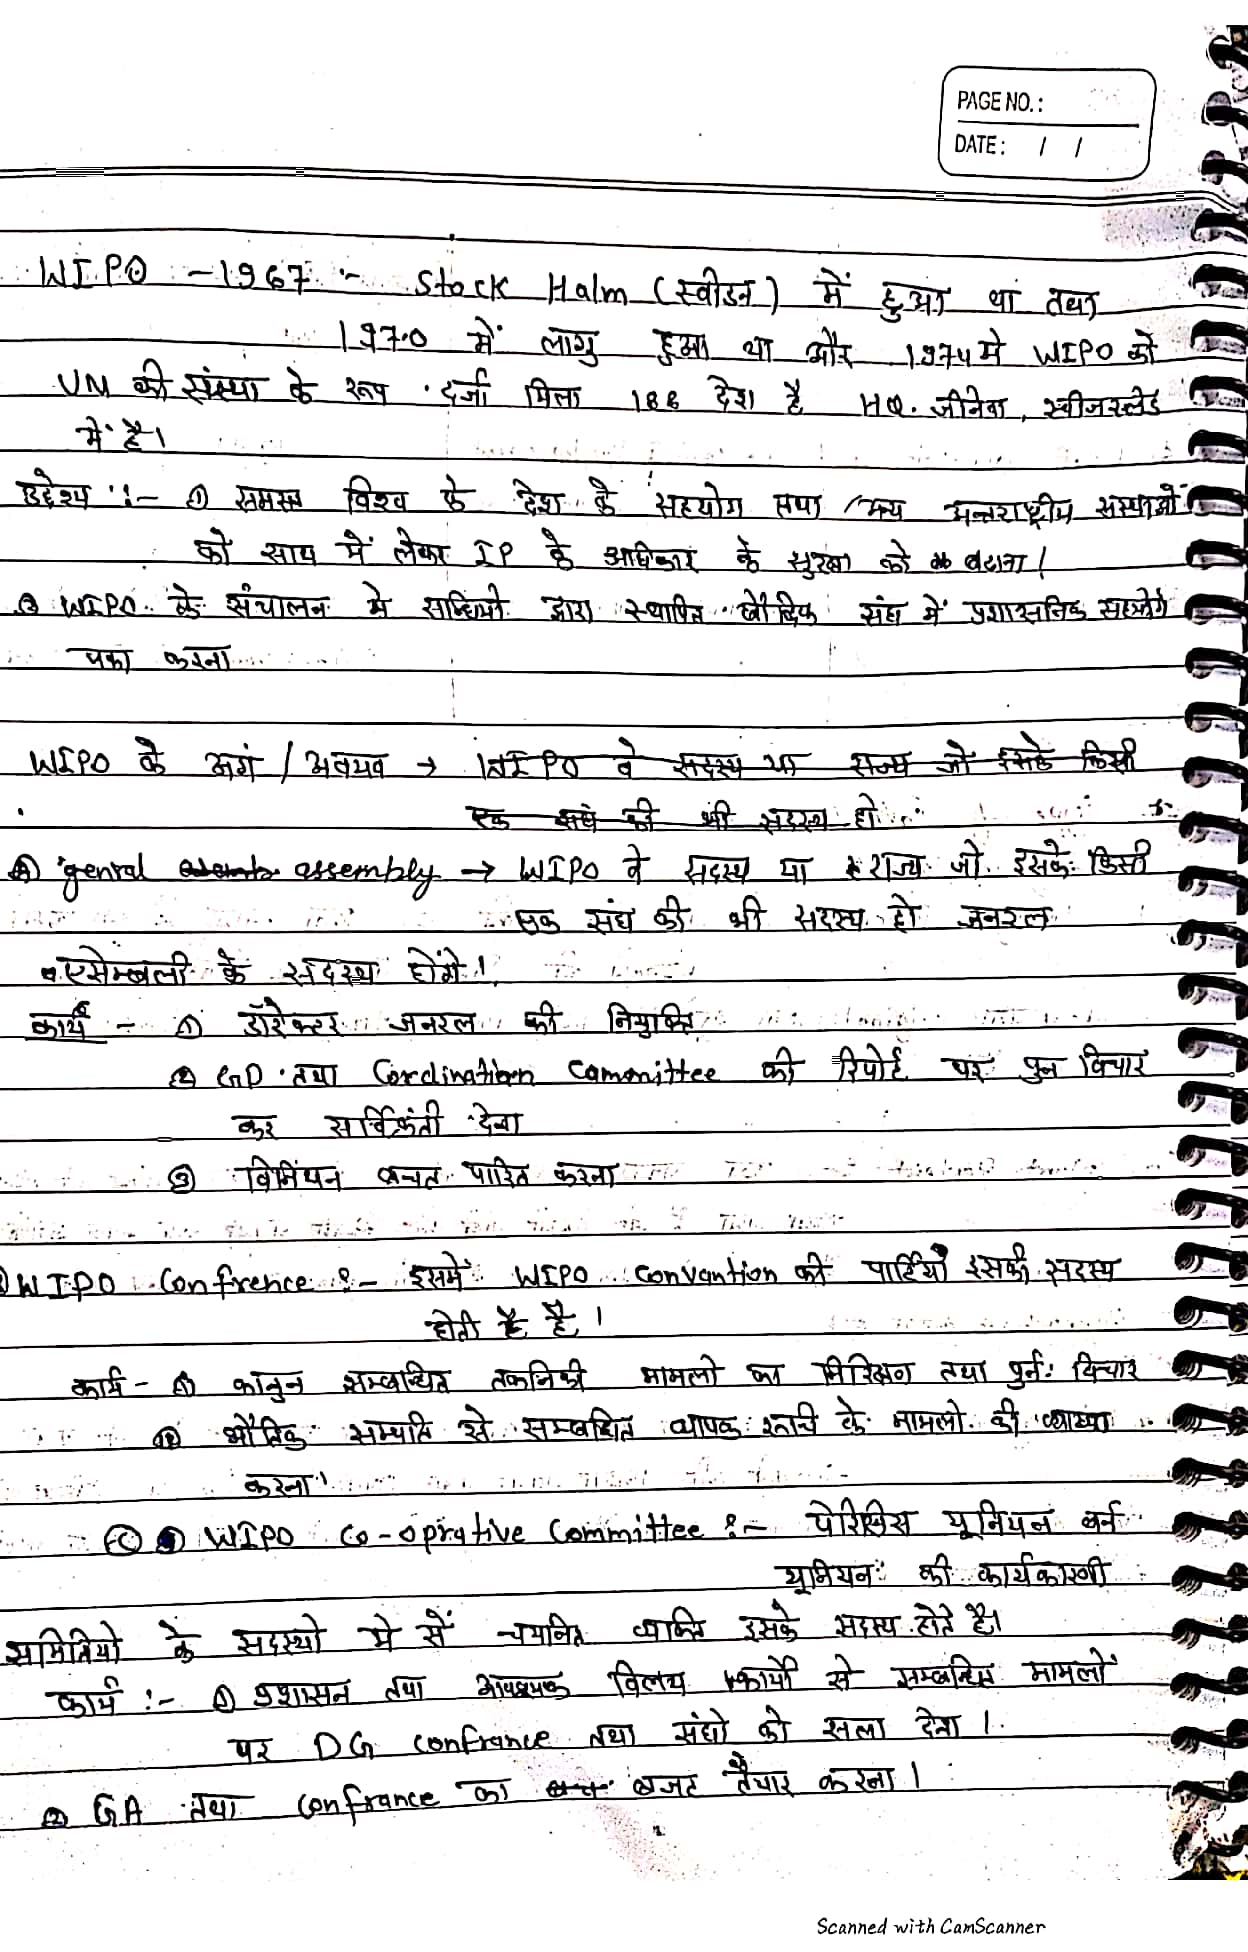 PAGE NO.:
DATE: / /
WIPO - 1967 :- Stock Halm (स्वीडन) में हुआ था तथा
1970 में लागु हुआ था और 1974 मे WIPO को
UN की संस्था के रूप दर्जा मिला 188 देश है HQ. जीनेवा, स्वीजरलेड
में है।
उद्देश्य :- ① समस्त विश्व के देश के सहयोग तथा अन्तराष्ट्रीय संस्थाओ
को साथ में लेकर IP के अधिकार के सुरक्षा को बढाना।
② WIPO के संचालन मे सन्धियो द्वारा स्थापित बौदिक संघ में प्रशासनिक सहयोग
करना
WIPO के अगं / अवयव → WIPO वे सदस्य या राज्य जो इसके किसी
एक संघ की भी सदस्य हो
Ⓐ genral assembly → WIPO वे सदस्य या राज्य जो इसके किसी
एक संघ की भी सदस्य हो जनरल
एसेम्बली के सदस्य होंगे।
कार्य - ① डॉरेक्टर जनरल की नियुक्ति
② GD तथा Cordination Committee की रिपोर्ट पर पुन विचार
कर देना
③ बचत पारित करना
WIPO Confrence :- इसमें WIPO Convantion की पार्टियाँ इसकी सदस्य
होती है है।
कार्य - ① कानुन सम्बन्धित तकनिकी मामलो का निरिक्षण तथा पुर्नः विचार
② भौतिक सम्पति से सम्बन्धित व्यापक रूची के मामलो की व्याख्या
करना।
Ⓒ WIPO Co-oprative Committee :- पेरिसिस यूनियन बर्न
यूनियन की कार्यकारणी
समितियो के सदस्यो मे सें चयनित व्यक्ति इसके सदस्य होते है।
कार्य :- ① प्रशासन तथा आवश्यक कार्यो से सम्बन्धित मामलों
पर DG confrance तथा संघो को सला देना।
② GA तथा confrance का बजट तैयार करना।
Scanned with CamScanner